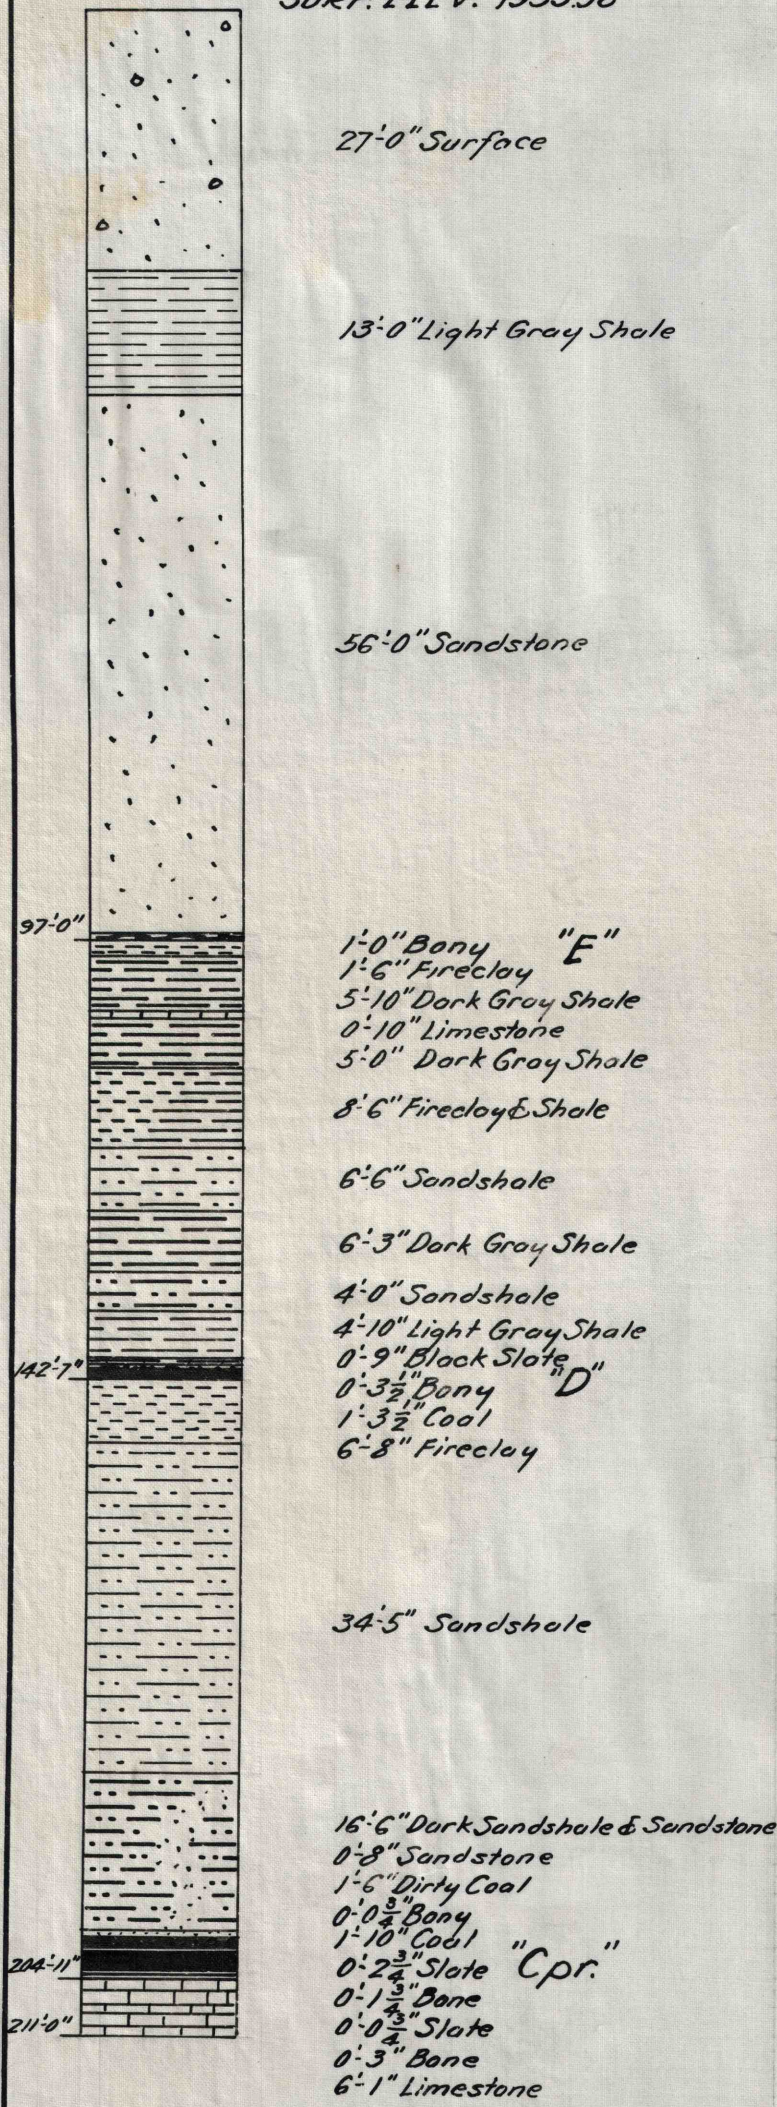 27'-0" Surface
13'-0" Light Gray Shale
56'-0" Sandstone
97'-0"
1'-0" Bony "E"
1'-6" Fireclay
5'-10" Dark Gray Shale
0'-10" Limestone
5'-0" Dark Gray Shale
8'-6" Fireclay & Shale
6'-6" Sandshale
6'-3" Dark Gray Shale
4'-0" Sandshale
4'-10" Light Gray Shale
0'-9" Black Slate
142'-7"
0'-3 1/2" Bony "D"
1'-3 1/2" Coal
6'-8" Fireclay
34'-5" Sandshale
16'-6" Dark Sandshale & Sandstone
0'-8" Sandstone
1'-6" Dirty Coal
0'-0 3/4" Bony
1'-10" Coal
204'-11"
0'-2 3/4" Slate "Cpr."
0'-1 3/4" Bone
211'-0"
0'-0 3/4" Slate
0'-3" Bone
6'-1" Limestone